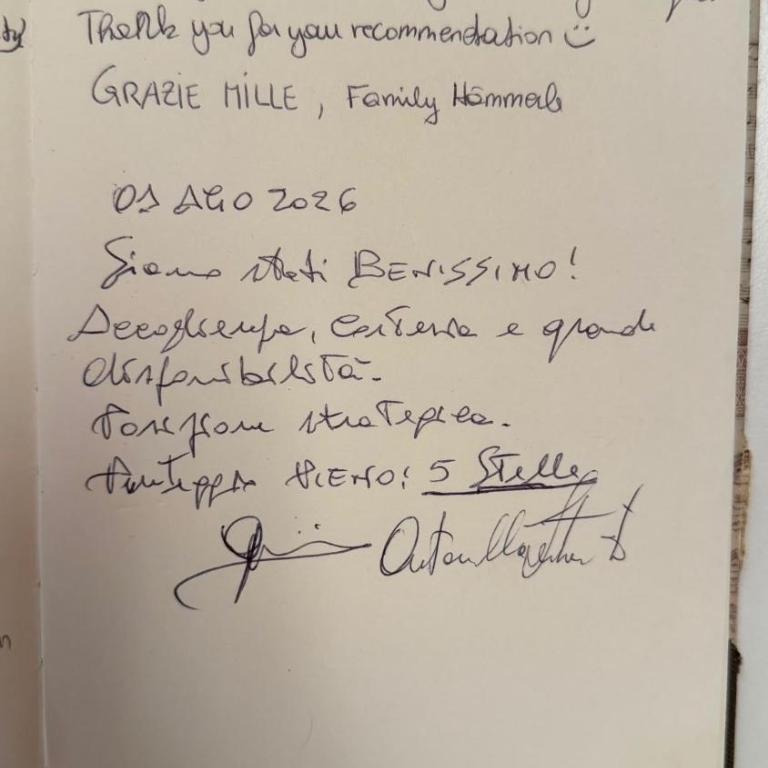 Thank you for your recommendation :)
GRAZIE MILLE, Family Hämmerle
01 AGO 2026
Siamo stati BENISSIMO!
Accoglienza, cortesia e grande
disponibilità.
Posizione strategica.
Punteggio PIENO! 5 Stelle